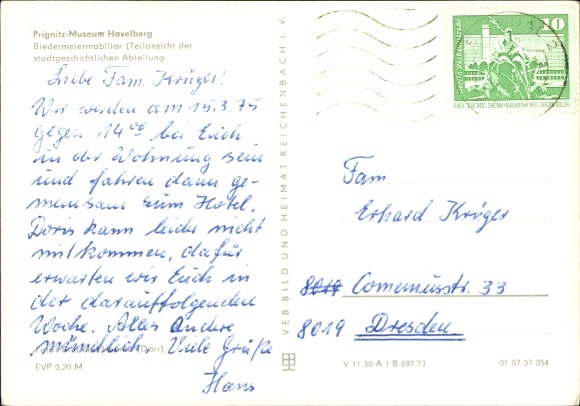 Prignitz-Museum Havelberg
Biedermeiermobiliar (Teilansicht der
stadtgeschichtlichen Abteilung
Liebe Fam. Krüger!
Wir werden am 15.3.75
gegen 14⁰⁰ bei Euch
in der Wohnung sein
und fahren dann ge-
meinsam zum Hotel.
Doris kann leider nicht
mitkommen, dafür
erwarten wir Euch in
der darauffolgenden
Woche. Alles Andere
mündlich. Viele Grüße
Hans
(Dorr)
EVP 0,20 M
VEB BILD UND HEIMAT REICHENBACH i. V.
10
DEUTSCHE DEMOKRATISCHE REPUBLIK
Fam
Erhard Krüger
8017 Comeniusstr. 33
8019 Dresden
V 11 50 A 1 B 697 73
01 07 07 054